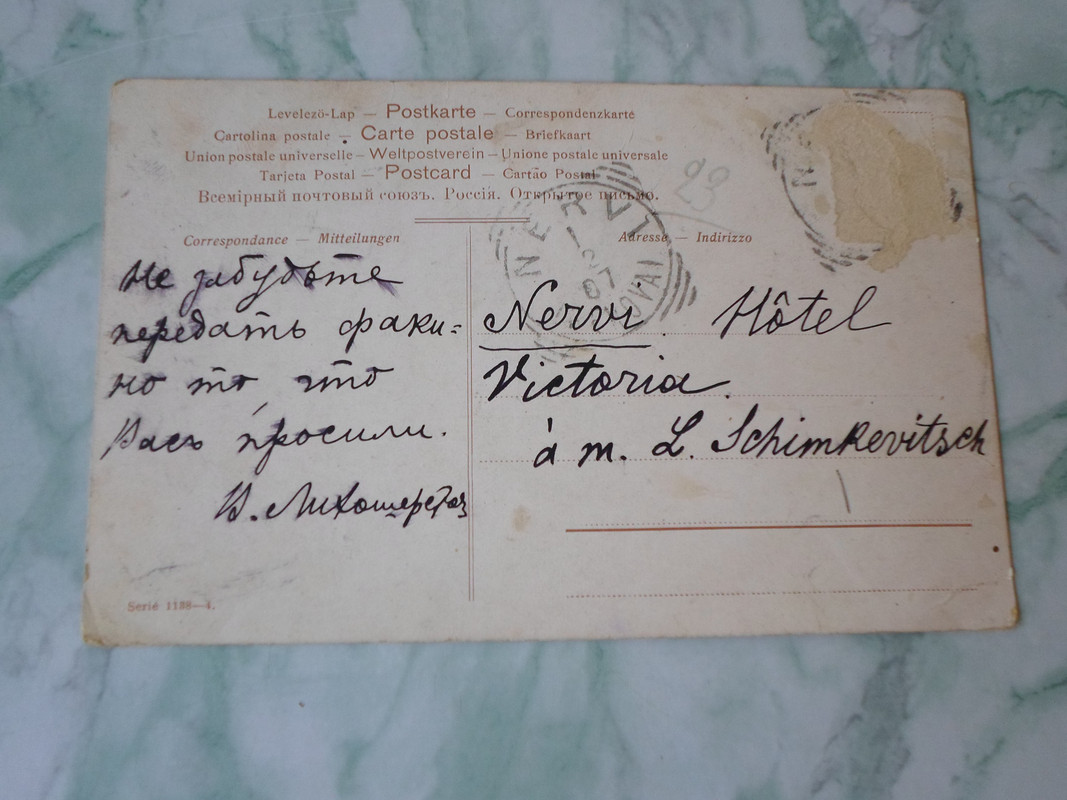 Levelező-Lap — Postkarte — Correspondenzkarte
Cartolina postale — Carte postale — Briefkaart
Union postale universelle — Weltpostverein — Unione postale universale
Tarjeta Postal — Postcard — Cartão Postal
Всемірный почтовый союзъ. Россія. Открытое письмо.
23
NERVI
07
Correspondance — Mitteilungen
Adresse — Indirizzo
Не забудьте
передать факи=
но то, что
Васъ просили.
Nervi. Hôtel
Victoria.
à m. L. Schimkevitsch
Serie 1188—4.